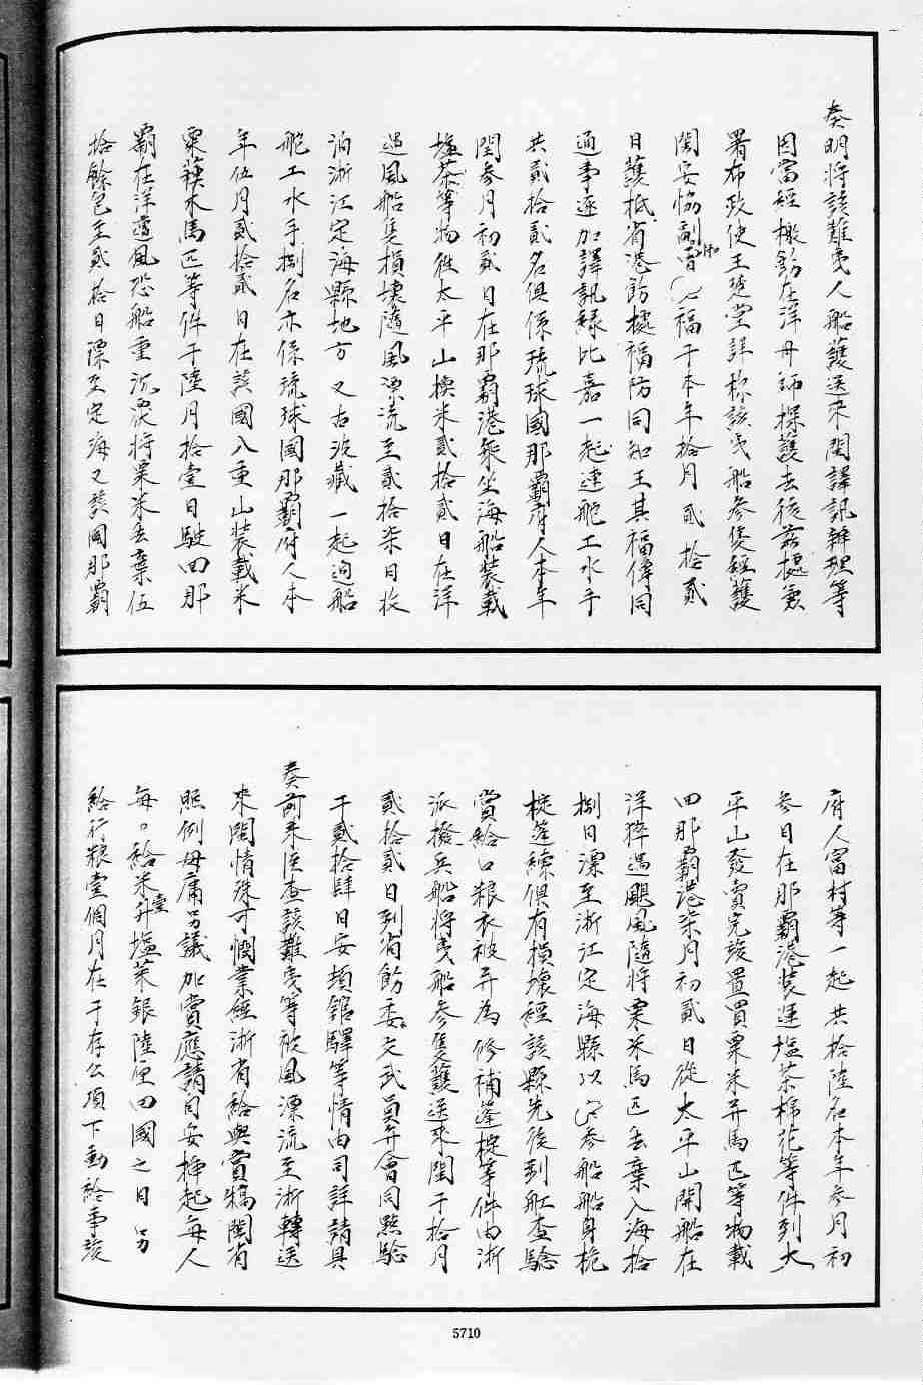 奏明將該難夷人船護送來閩譯訊辦理等
因當經檄飭在洋舟師探護去後茲據兼
署布政使王楚堂詳称該夷船參隻經護
閩安協副曾 福于本年拾月貳拾貳
日護抵省港飭據福防同知王其福傳同
通事逐加譯訊緣比嘉一起連舵工水手
共貳拾貳名俱係琉球國那覇府人本年
閏參月初貳日在那覇港乘坐海船裝載
塩茶等物徃太平山換米貳拾貳日在洋
遇風船隻損壞隨風漂流至貳拾柒日收
泊浙江定海縣地方又古波藏一起逈船
舵工水手捌名亦係琉球國那覇府人本
年伍月貳拾貳日在該國八重山裝載米
粟 木馬匹等件于陸月拾壹日駛回那
覇在洋遭風恐船重沉衆將粟米丟棄伍
拾餘包至貳拾日漂至定海又該國那覇
府人富村等一起共拾陸名本年參月初
參日在那覇港裝運塩茶棉花等件到太
平山發賣完竣置買粟米并馬匹等物載
回那覇港柒月初貳日從太平山開船在
洋猝遇颶風隨將粟米馬匹丟棄入海拾
捌日漂至浙江定海縣以 參船船身桅
椗蓬繚俱有損壞經該縣先後到舡查驗
賞給口粮衣被并為修補蓬椗等件由浙
派撥兵船將夷船參隻護送來閩于拾月
貳拾貳日到省飭委文武員弁會同點驗
于貳拾肆日安頓舘驛等情由司詳請具
奏前來臣查該難夷等被風漂流至浙轉送
來閩情殊可憫業經浙省給與賞犒閩省
照例毋庸另議加賞應請自安插起每人
每日給米壹升塩菜銀陸厘回國之日另
給行粮壹個月在于存公項下動給事竣
5710